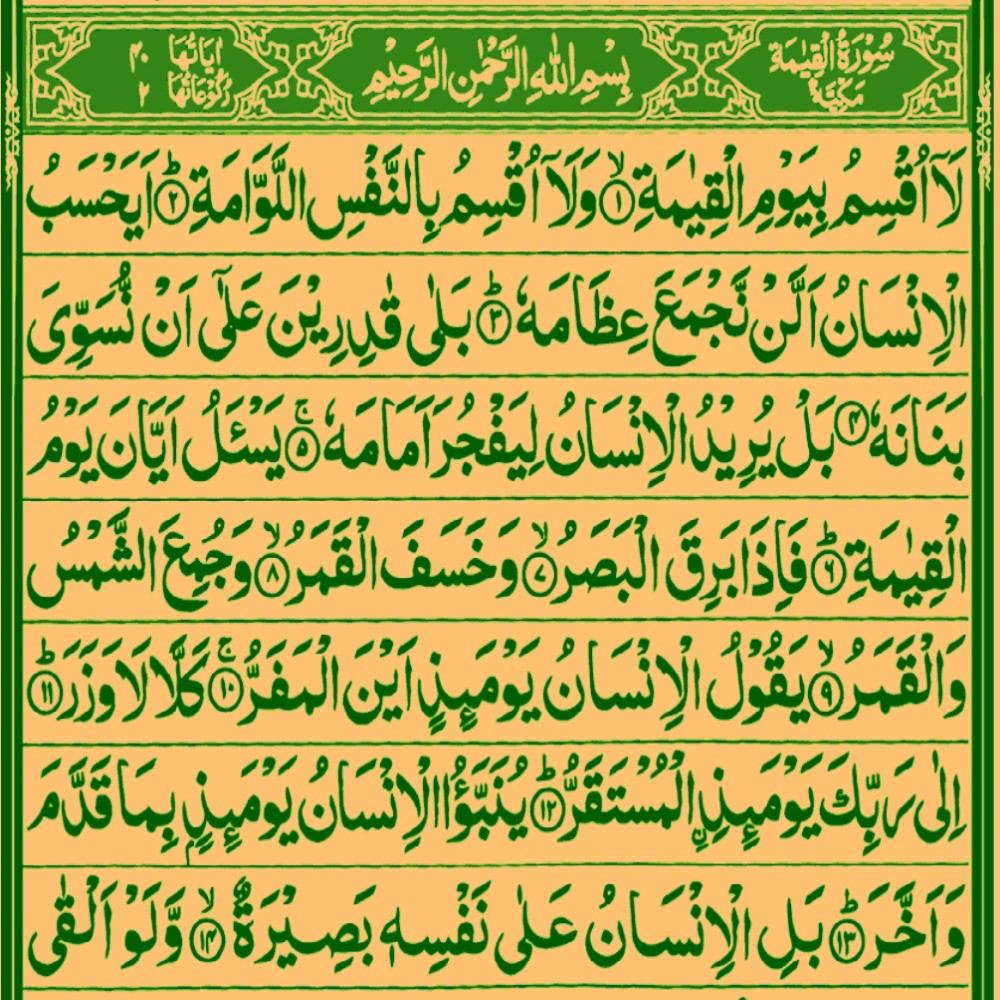 سُوْرَةُ الْقِيٰمَةِ مَكِّيَّةٌ
بِسْمِ اللهِ الرَّحْمٰنِ الرَّحِيْمِ
اٰيَاتُهَا ۴۰
رُكُوْعَاتُهَا ۲
لَاۤ اُقْسِمُ بِيَوْمِ الْقِيٰمَةِ ۙ﴿۱﴾ وَلَاۤ اُقْسِمُ بِالنَّفْسِ اللَّوَّامَةِ ؕ﴿۲﴾ اَيَحْسَبُ
الْاِنْسَانُ اَلَّنْ نَّجْمَعَ عِظَامَهٗ ؕ﴿۳﴾ بَلٰى قٰدِرِيْنَ عَلٰۤى اَنْ نُّسَوِّىَ
بَنَانَهٗ ﴿۴﴾ بَلْ يُرِيْدُ الْاِنْسَانُ لِيَفْجُرَ اَمَامَهٗ ۚ﴿۵﴾ يَسْـَٔلُ اَيَّانَ يَوْمُ
الْقِيٰمَةِ ؕ﴿۶﴾ فَاِذَا بَرِقَ الْبَصَرُ ۙ﴿۷﴾ وَخَسَفَ الْقَمَرُ ۙ﴿۸﴾ وَجُمِعَ الشَّمْسُ
وَالْقَمَرُ ۙ﴿۹﴾ يَقُوْلُ الْاِنْسَانُ يَوْمَىِٕذٍ اَيْنَ الْمَفَرُّ ۚ﴿۱۰﴾ كَلَّا لَا وَزَرَ ؕ﴿۱۱﴾
اِلٰى رَبِّكَ يَوْمَىِٕذِ ۨالْمُسْتَقَرُّ ؕ﴿۱۲﴾ يُنَبَّؤُا الْاِنْسَانُ يَوْمَىِٕذٍۭ بِمَا قَدَّمَ
وَاَخَّرَ ؕ﴿۱۳﴾ بَلِ الْاِنْسَانُ عَلٰى نَفْسِهٖ بَصِيْرَةٌ ۙ﴿۱۴﴾ وَّلَوْ اَلْقٰى